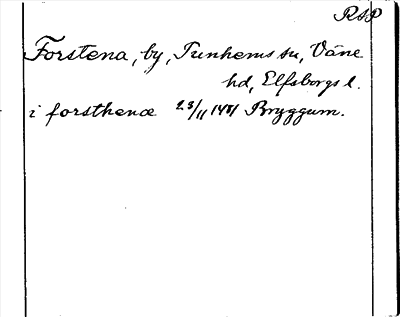 RSP
Forstena, by, Tunhems sn, Väne
hd, Elfsborgs l.
i forsthenæ 23/11 1481 Bryggum.